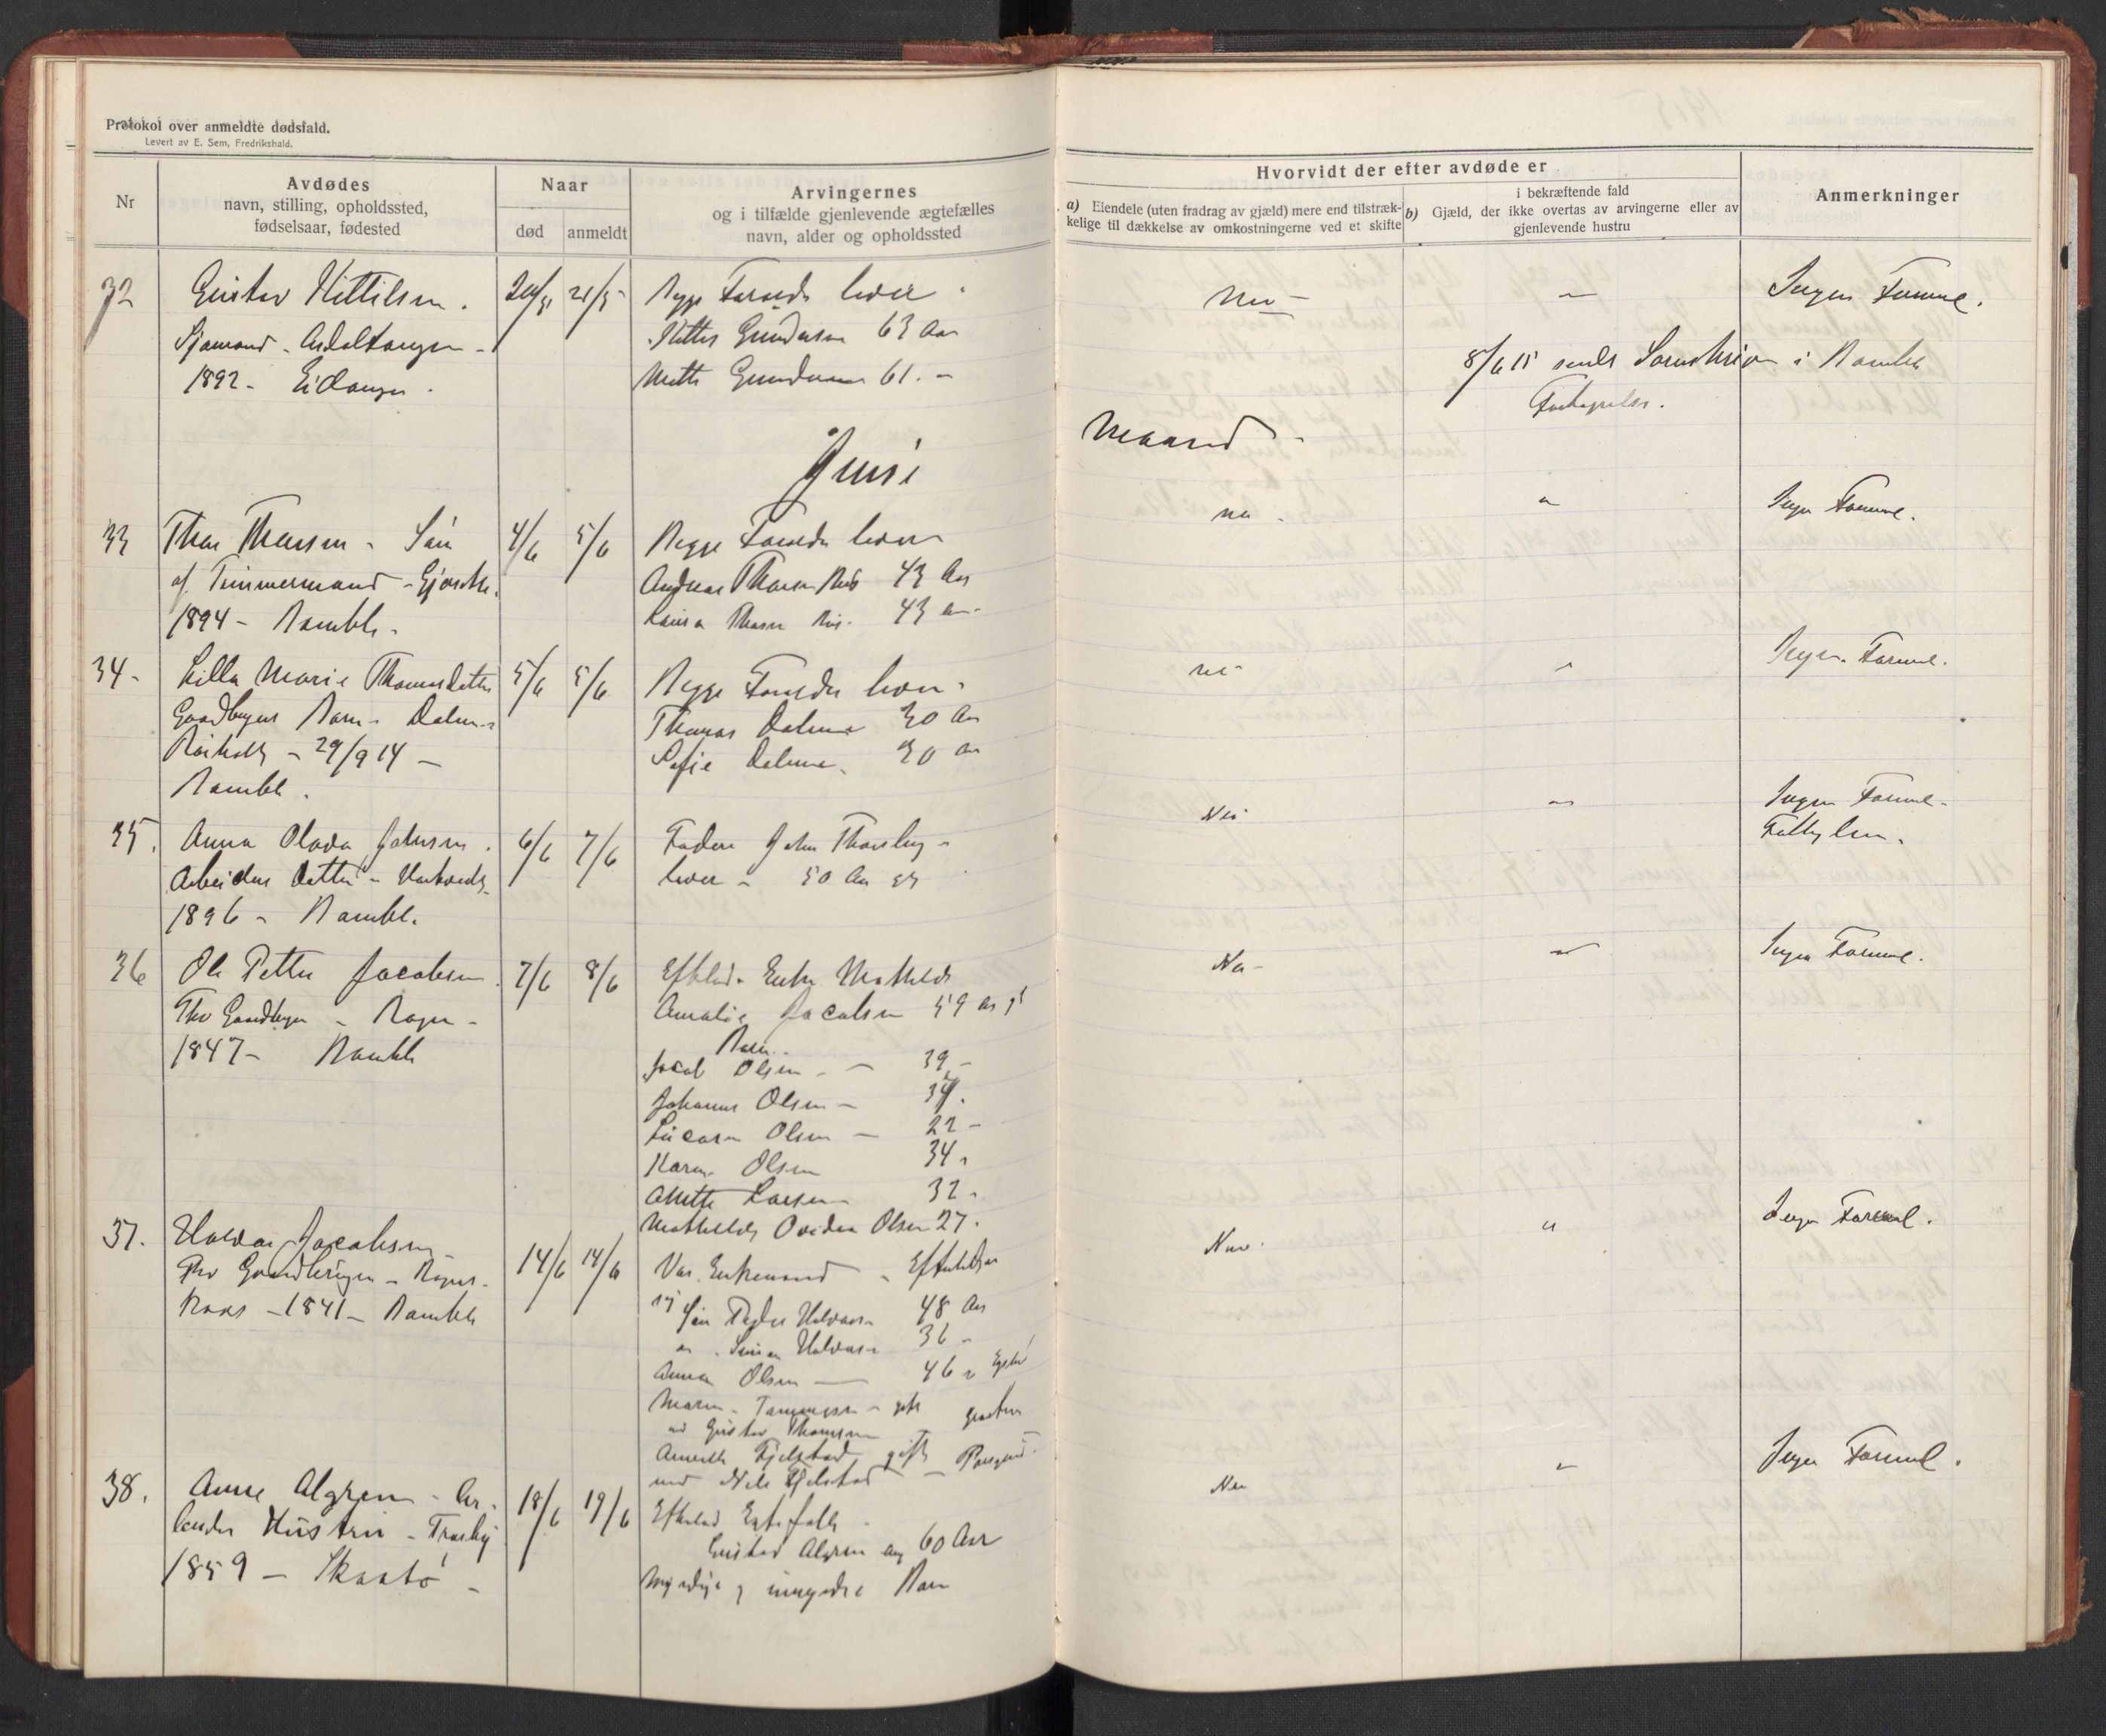 Protokol over anmeldte dødsfald.
Levert av E. Sem, Fredrikshald.
Nr
Avdødes
navn, stilling, opholdssted,
fødselsaar, fødested
Naar
død
anmeldt
Arvingernes
og i tilfælde gjenlevende ægtefælles
navn, alder og opholdssted
Hvorvidt der efter avdøde er
a) Eiendele (uten fradrag av gjæld) mere end tilstræk-
kelige til dækkelse av omkostningerne ved et skifte
i bekræftende fald
b) Gjæld, der ikke overtas av arvingerne eller av
gjenlevende hustru
Anmerkninger
32
Gustav Kittilsen.
Sjømand -
1892 - Eidanger.
21/5
Begge Forældre lever.
Kittil Gundersen 63 Aar
Mette Gundersen 61. -
Nei -
"
Ingen Formue.
8/6 15 sendt Sorenskriver i Bamble
Juni
Maaned -
33
Thor Thorsen - Søn
af Tømmermand -
1894 - Bamble.
4/6
5/6
Begge Forældre lever
Andreas Thorsen 43 Aar
Laura Thorsen 43 Aar
Nei -
"
Ingen Formue.
34 -
Lilla Marie Thomasdatter
Gaardbruger Barn - Dalene
29/9 14 -
Bamble.
5/6
5/6
Begge Forældre lever -
Thomas Dalene 30 Aar
Sofie Dalene. 30 Aar
Nei
"
Ingen Formue.
35.
Anna Olava Johnsen.
Arbeider Datter -
1896 - Bamble.
6/6
7/6
Fader John Thorsby -
lever - 50 Aar gl
Nei
"
Ingen Formue -
36
Ole Petter Jacobsen.
Fhv Gaardbruger -
1847 - Bamble
7/6
8/6
Efterlad. Enke Mathilde
Amalie Jacobsen 59 Aar gl
Barn.
Jacob Olsen - - 39 -
Johannes Olsen - 37.
Olsen - 22 -
Karen Olsen 34 "
Anette Larsen 32 -
Mathilde Ovidia Olsen 27.
Nei -
"
Ingen Formue.
37.
Halvor Jacobsen -
Fhv Gaardbruger -
- 1841 - Bamble
14/6
14/6
Var Enkemand - Efterlader
Søn Peder Halvorsen 48 Aar
" Simon Halvorsen 36 -
Anna Olsen - 46 "
Maren - gift
med Gustav Thomesen
Fjelstad gift
med Nils Fjelstad - Porsgrund.
Nei.
"
Ingen Formue.
38.
Anne Algren - Ar-
beider Hustru -
1859 - Skaatø -
18/6
19/6
Efterlad Ektefælle
Gustav Algren 60 Aar
Myndige og umyndige Barn
Nei
"
Ingen Formue.